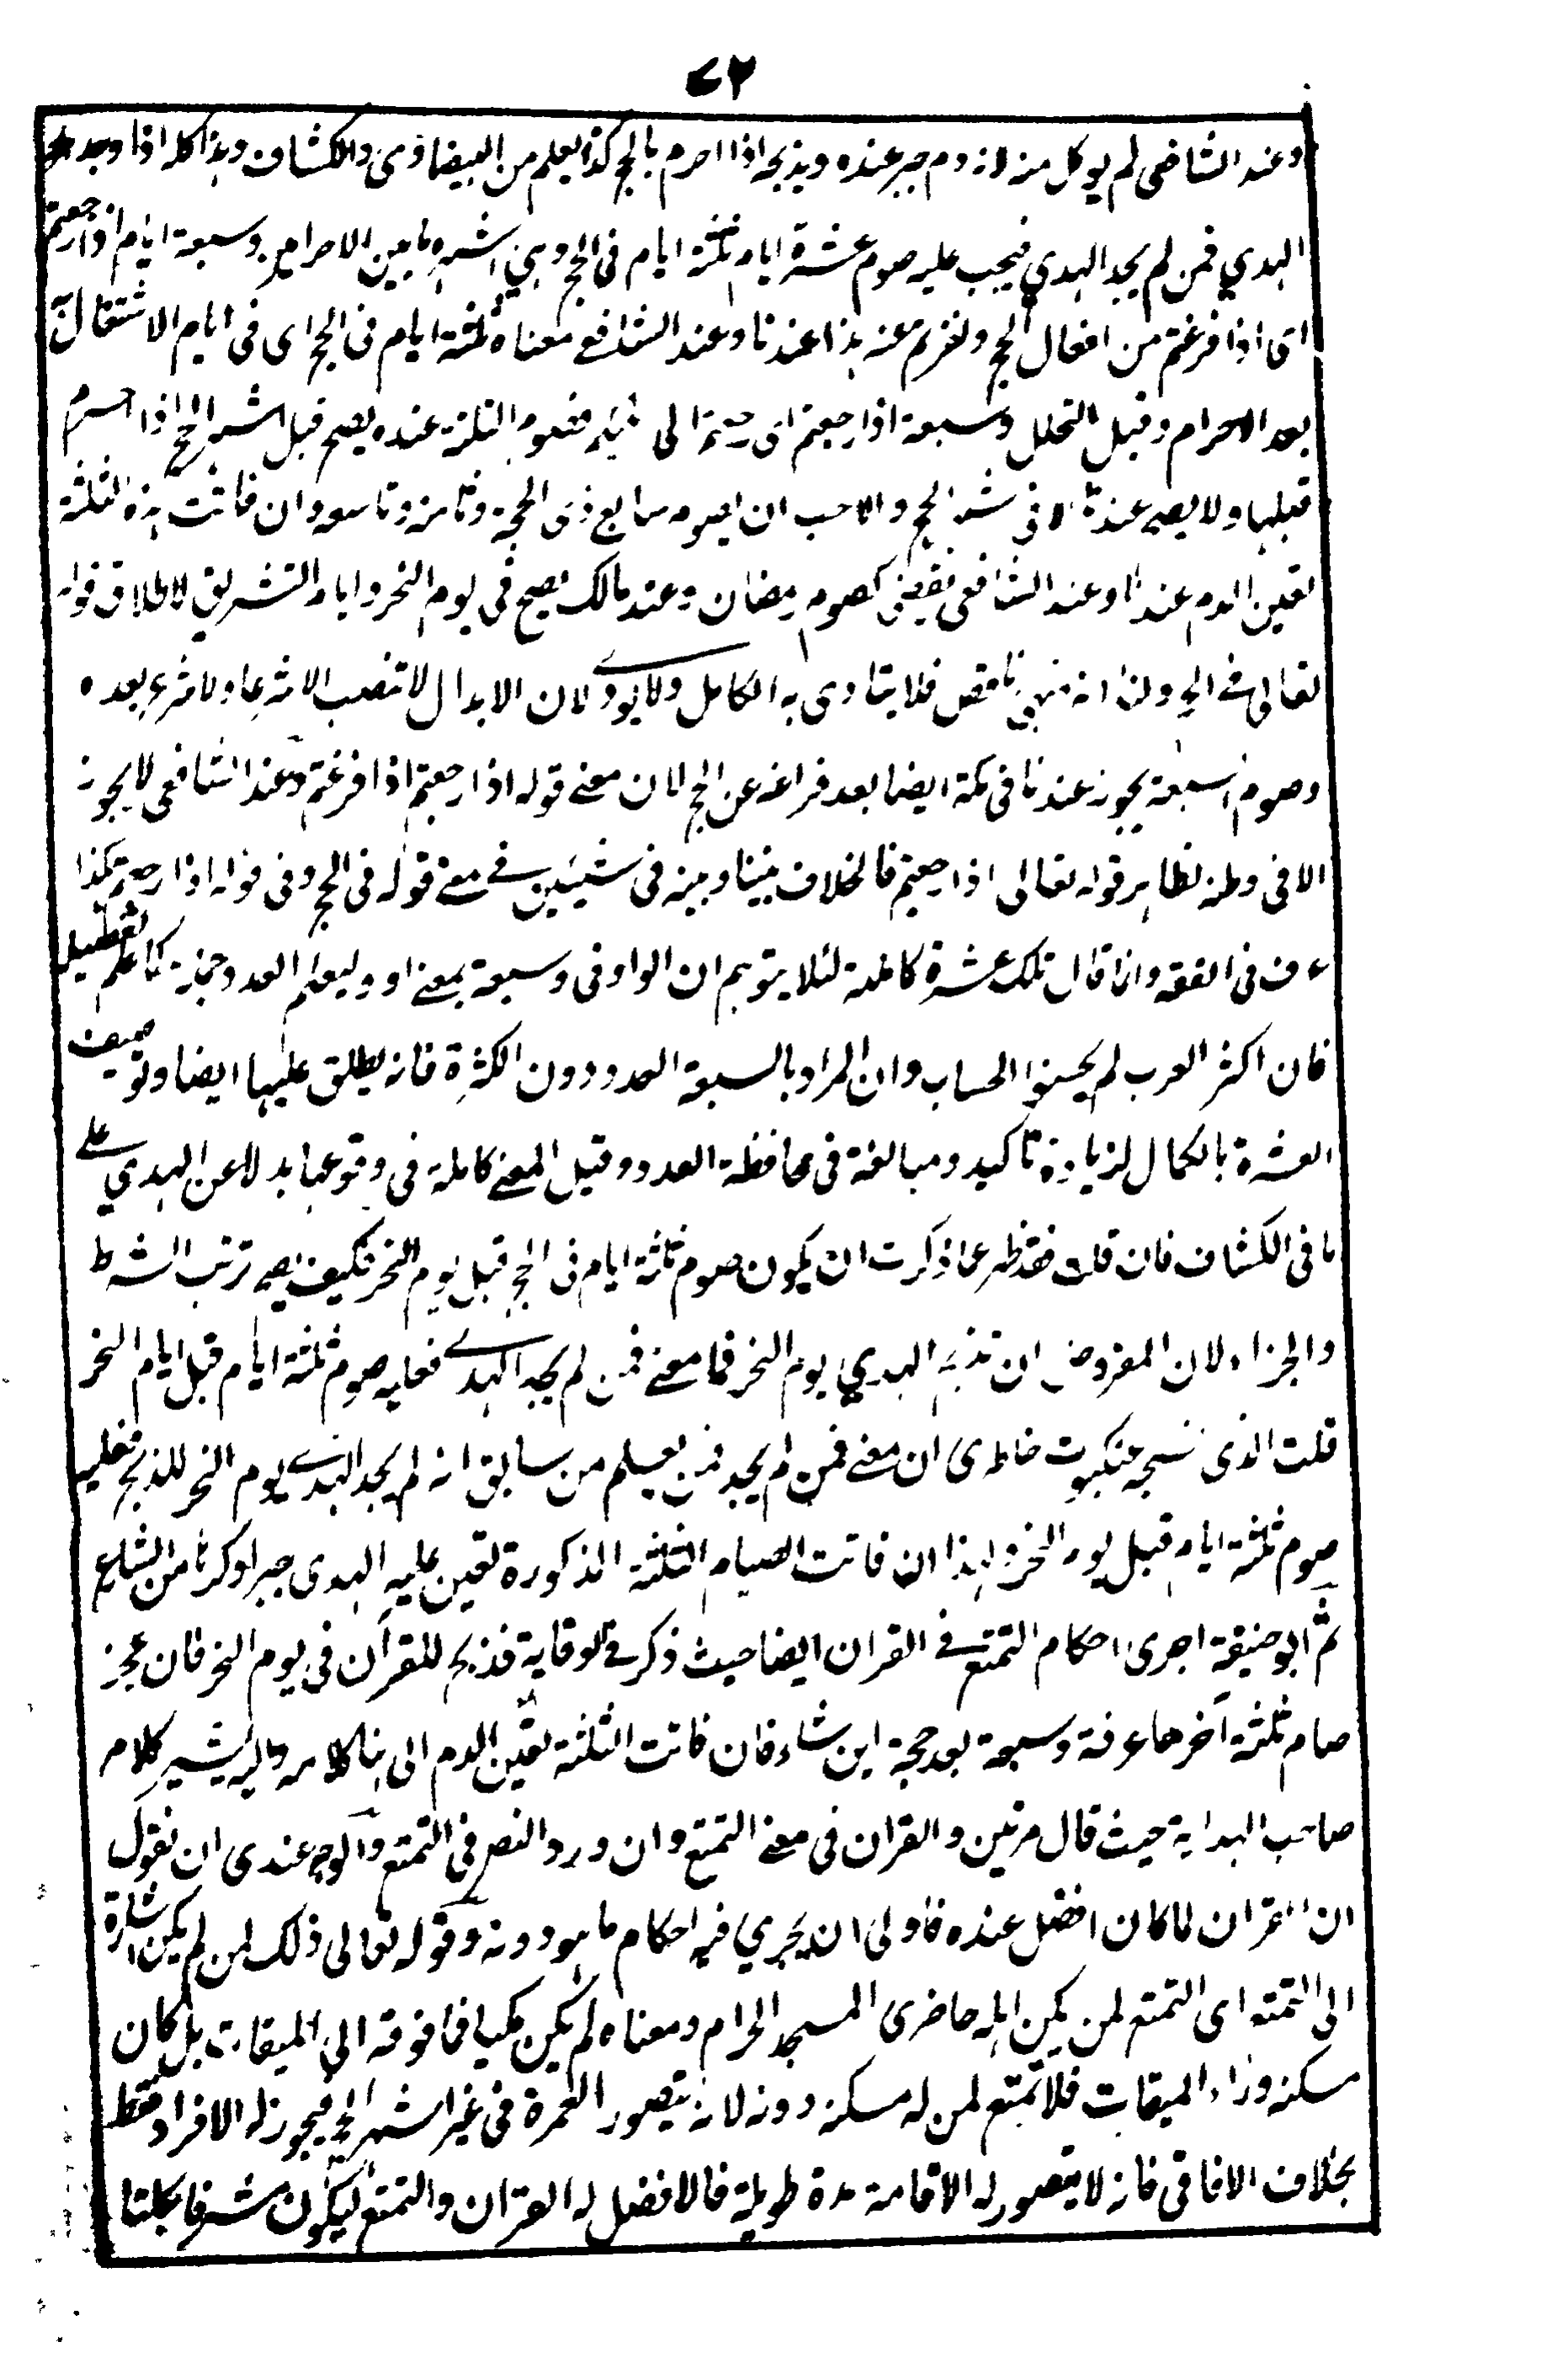 ٧٢
وعند الشافعی لم یوکل منه لانه دم جبر عنده ویذبحه اذا احرم بالحج کذا یعلم من البیضاوی والکشاف وهذا کله اذا وجد
الهدی فمن لم یجد الهدی فیجب علیه صوم عشرة ایام ثلثة ایام فی الحج وهی اشهره ما بین الاحرامین وسبعة ایام اذا رجعتم
ای اذا فرغتم من افعال الحج ونفرتم عنه هذا عندنا وعند الشافعی معناه ثلثة ایام فی الحج ای فی ایام الاشتغال به
بعد الاحرام وقبل التحلل وسبعة اذا رجعتم ای رجعتم الی اهلیکم فصوم الثلثة عنده یصح قبل اشهر الحج اذا احرم
قبلها ولا یصح عندنا الا فی اشهر الحج والاحب ان یصومه سابع ذی الحجة وثامنه وتاسعه وان فاتت هذه الثلثة
تعین الدم عندنا وعند الشافعی تقضی کصوم رمضان وعند مالک یصح فی یوم النحر وایام التشریق لاطلاق قوله
تعالی فی الحج ولنا انه منهی ناقص فلا یتادی به الکامل ولا یودی لان الابدال لا تنصب الا شرعا ولا شرع بعده
وصوم السبعة یجوز عندنا فی مکة ایضا بعد فراغه عن الحج لان معنی قوله اذا رجعتم اذا فرغتم وعند الشافعی لا یجوز
الا فی وطنه لظاهر قوله تعالی اذا رجعتم فالخلاف بیننا وبینه فی شیئین فی معنی قوله فی الحج وفی قوله اذا رجعتم هکذا
عرف فی الفقه وانما قال تلک عشرة کاملة لئلا یتوهم ان الواو فی وسبعة بمعنی او ولیعلم العدد جملة کما علم تفصیلا
فان اکثر العرب لم یحسنوا الحساب وان المراد بالسبعة العدد دون الکثرة فانه یطلق علیها ایضا وتوصیف
العشرة بالکمال لزیادة تاکید ومبالغة فی محافظة العدد وقیل المعنی کاملة فی وقوعها بدلا عن الهدی علی
ما فی الکشاف فان قلت فقد ظهر مما ذکرت ان یکون صوم ثلثة ایام فی الحج قبل یوم النحر فکیف یصح ترتب الشرط
والجزاء لان المفروض ان تذبح الهدی یوم النحر فما معنی فمن لم یجد الهدی فعلیه صوم ثلثة ایام قبل ایام النحر
قلت الذی نسجه عنکبوت خاطری ان معنی فمن لم یجد فمن یعلم من سابق انه لم یجد الهدی یوم النحر للذبح فعلیه
صوم ثلثة ایام قبل یوم النحر ولهذا ان فاتت الصیام الثلثة المذکورة تعین علیه الهدی جبرا وکرها من الشارع
ثم ابو حنیفة اجری احکام التمتع فی القران ایضا حیث ذکر فی الوقایة فذبح للقرآن فی یوم النحر فان عجز
صام ثلثة آخرها عرفة وسبعة بعد حجة این شاء فان فاتت الثلثة تعین الدم الی هنا کلامه والیه یشیر کلام
صاحب الهدایة حیث قال مرتین والقران فی معنی التمتع وان ورد النص فی التمتع والوجه عندی ان نقول
ان القران لما کان افضل عنده فاولی ان یجری فیه احکام ما هو دونه وقوله تعالی ذلک لمن لم یکن اشارة
الی التمتع ای التمتع لمن یکن اهله حاضری المسجد الحرام ومعناه لم یکن مکیا فما فوقه الی المیقات بل کان
مسکنه وراء المیقات فلا تمتع لمن له مسکنه دونه لانه یتصور العمرة فی غیر اشهر الحج فیجوز له الافراد فقط
بخلاف الافاقی فانه لا یتصور له الاقامة مدة طویلة فالافضل له القران والتمتع لیکون مشرفا بکلتا